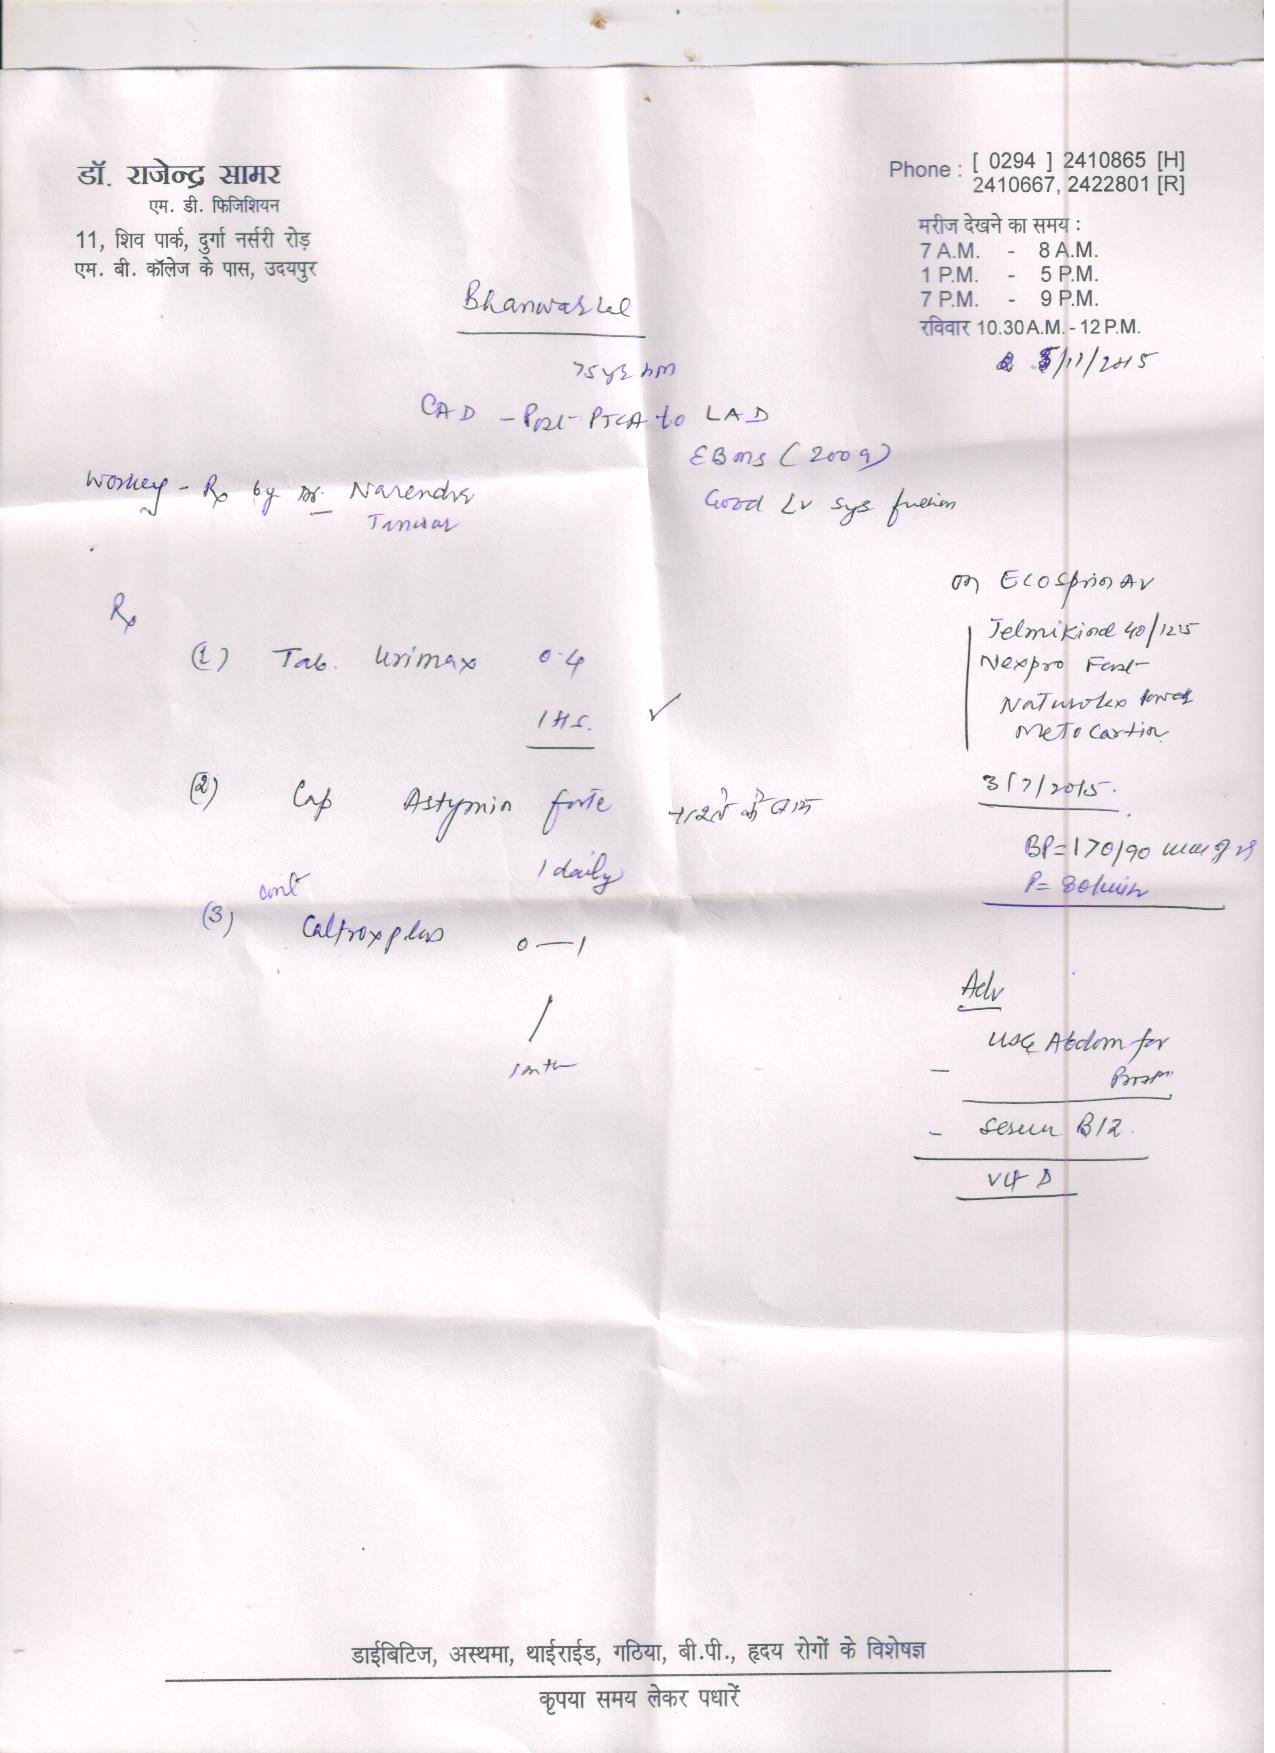 डॉ. राजेन्द्र सामर
एम. डी. फिजिशियन
11, शिव पार्क, दुर्गा नर्सरी रोड़
एम. बी. कॉलेज के पास, उदयपुर
Phone : [ 0294 ] 2410865 [H]
2410667, 2422801 [R]
मरीज देखने का समय :
7 A.M. - 8 A.M.
1 P.M. - 5 P.M.
7 P.M. - 9 P.M.
रविवार 10.30 A.M. - 12 P.M.
5/11/2015
Bhanwarlal
75 yrs
CAD - Post- PTCA to LAD
(2009)
Good LV sys function
Rx by Dr. Narendra
Tanwar
Rx
(1) Tab. Urimax 0.4
1 HS.
(2) Cap Astymin forte
1 daily
cont
(3) Caltrox plus 0—1
on Ecosprin AV
Telmikind 40/12.5
Nexpro Fast
Naturolax
Metocartin
3/7/2015.
BP=170/90
P= 80/min
Adv
- USG Abdom for
- Serum B12.
Vit D
डाईबिटिज, अस्थमा, थाईराईड, गठिया, बी.पी., हृदय रोगों के विशेषज्ञ
कृपया समय लेकर पधारें